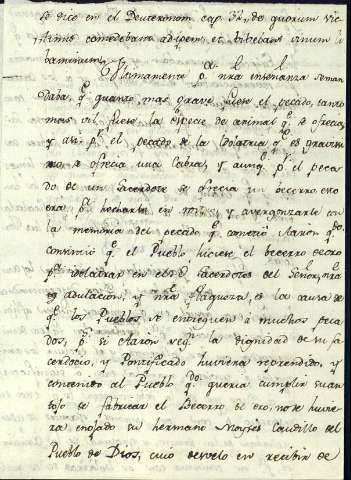 se dice en el Deuteronom. cap. 32, de quorum vic-
timis comedebant adipem, et bibebant vinum li
baminum.
Ultimamente pª nrâ enseñanza se man
daba, q.e quanto mas grave fuese el pecado, tanto
mas vil fuese la especie de animal q.e se ofrecia,
y asi p.r el pecado de la Idolatria q.e es gravissi
mo, se ofrecia una Cabra, y aunq.e p.r el peca
do de un Sacerdote se ofrecia un becerro, eso
era p.a hecharle en y avergonzarle con
la memoria del pecado q.e cometió Aaron q.do
convinió q.e el Pueblo hiciese el becerro de oro
p.a idolatrar en el: Sacerdotes del Señor, nrâ
adulacion, y nrâ flaqueza, es la causa de
q.e los Pueblos se entreguen à muchos peca
dos, p.s si Aaron seg.n la dignidad de su sa
cerdocio, y Pontificado huviera reprendido, y
contenido al Pueblo q.do queria cumplir su an
tojo de fabricar el Becerro de oro, no se huvie
ra enojado su hermano Moyses Caudillo del
Pueblo de Dios, cuio desvelo en recibir de